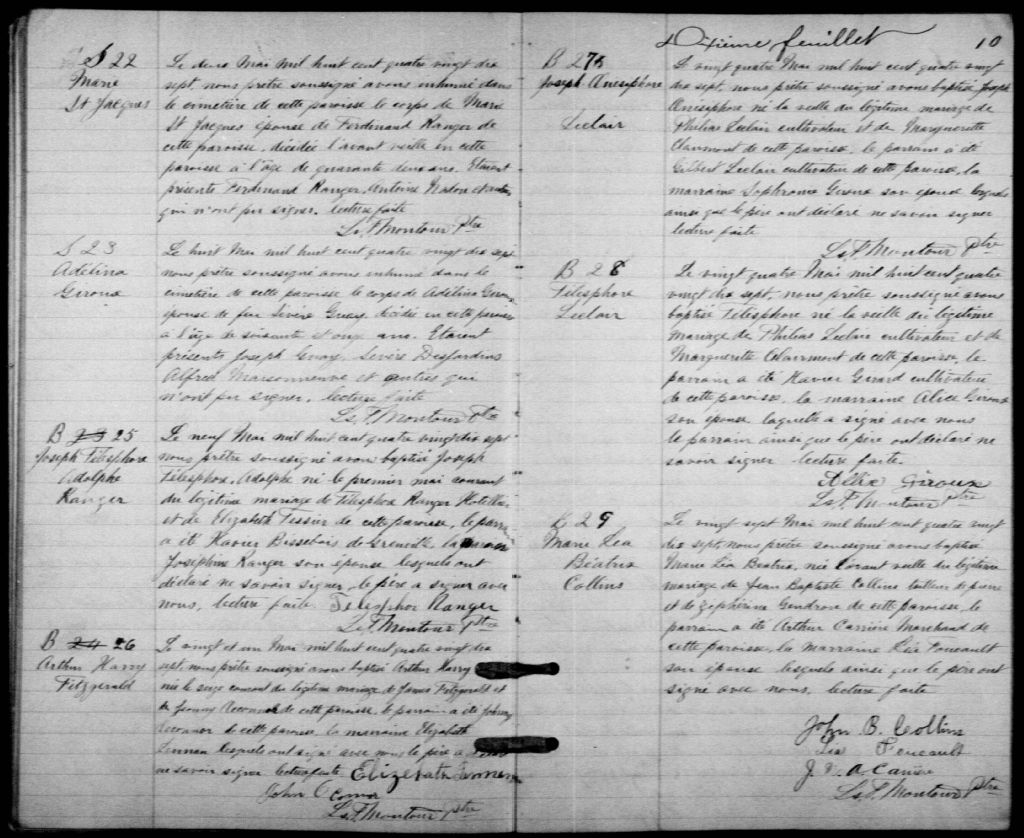 S 22
Marie
St Jacques
Le deux Mai mil huit cent quatre vingt dix
sept, nous prêtre soussigné avons inhumé dans
le cimetière de cette paroisse le corps de Marie
St Jacques épouse de Ferdinand Ranger de
cette paroisse, décédée l'avant veille en cette
paroisse à l'âge de quarante deux ans. Etaient
présents Ferdinand Ranger, Antoine et autres
qui n'ont pu signer. lecture faite
Ls. F. Montour Ptre
S 23
Adélina
Giroux
Le huit Mai mil huit cent quatre vingt dix sept
nous prêtre soussigné avons inhumé dans le
cimetière de cette paroisse le corps de Adélina Giroux
épouse de feu Sévère décédée en cette paroisse
à l'âge de soixante et onze ans. Etaient
présents Joseph Sévère Desjardins
Alfred Marsonneuve et autres qui
n'ont pu signer, lecture faite
Ls. F. Montour Ptre
B 23 25
Joseph Télesphore
Adolphe
Ranger
Le neuf Mai mil huit cent quatre vingt dix sept
nous prêtre soussigné avons baptisé Joseph
Télesphore Adolphe né le premier mai courant
du légitime mariage de Télesphore Ranger Hotellier
et de Elizabeth Tessier de cette paroisse, le parrain
a été Xavier Bissebois de Grenville la marraine
Josephine Ranger son épouse lesquels ont
déclaré ne savoir signer, le père a signer avec
nous, lecture faite. Telesphor Ranger
Ls. F. Montour Ptre
B 24 26
Arthur Harry
Fitzgerald
Le vingt et un Mai mil huit cent quatre vingt dix
sept, nous prêtre soussigné avons baptisé Arthur Harry
né le seize courant du légitime mariage de James Fitzgerald et
de Jenny Oconnor de cette paroisse, le parrain a été Johnny
Oconnor de cette paroisse, la marraine Elizabeth
Lennan lesquels ont signé avec nous le père a
ne savoir signer lecture faite Elizebeth
John O Connor
Ls. F. Montour Ptre
Dixième feuillet
10
B 27
Joseph Anésiphore
Leclair
Le vingt quatre Mai mil huit cent quatre vingt
dix sept, nous prêtre soussigné avons baptisé Joseph
Anésiphore né la veille du légitime mariage de
Philias Leclair cultivateur et de Marguerette
Clairmont de cette paroisse, le parrain a été
Gilbert Leclair cultivateur de cette paroisse, la
marraine Sophronie Giroux son épouse lesquels
ainsi que le père ont déclaré ne savoir signer
lecture faite
Ls. F. Montour Ptre
B 28
Télesphore
Leclair
Le vingt quatre Mai mil huit cent quatre
vingt dix sept, nous prêtre soussigné avons
baptisé Télesphore né la veille du légitime
mariage de Philias Leclair cultivateur et de
Marguerette Clairmont de cette paroisse, le
parrain a été Xavier Gerard cultivateur
de cette paroisse, la marraine Alice Giroux
son épouse, laquelle a signé avec nous
le parrain ainsi que le père ont déclaré ne
savoir signer lecture faite.
Allix Giroux
Ls. F. Montour Ptre
B 29
Marie Léa
Béatrix
Collins
Le vingt sept Mai mil huit cent quatre vingt
dix sept, nous prêtre soussigné avons baptisé
Marie Léa Beatrix, née l'avant veille du légitime
mariage de Jean Baptiste Collins tailleur de pierre
et de Zephérine Gendron de cette paroisse, le
parrain a été Arthur Carrière Marchand de
cette paroisse, la marraine Léa Foucault
son épouse lesquels ainsi que le père ont
signé avec nous, lecture faite
John B. Collins
Lea Foucault
J. A. Carière
Ls. F. Montour Ptre